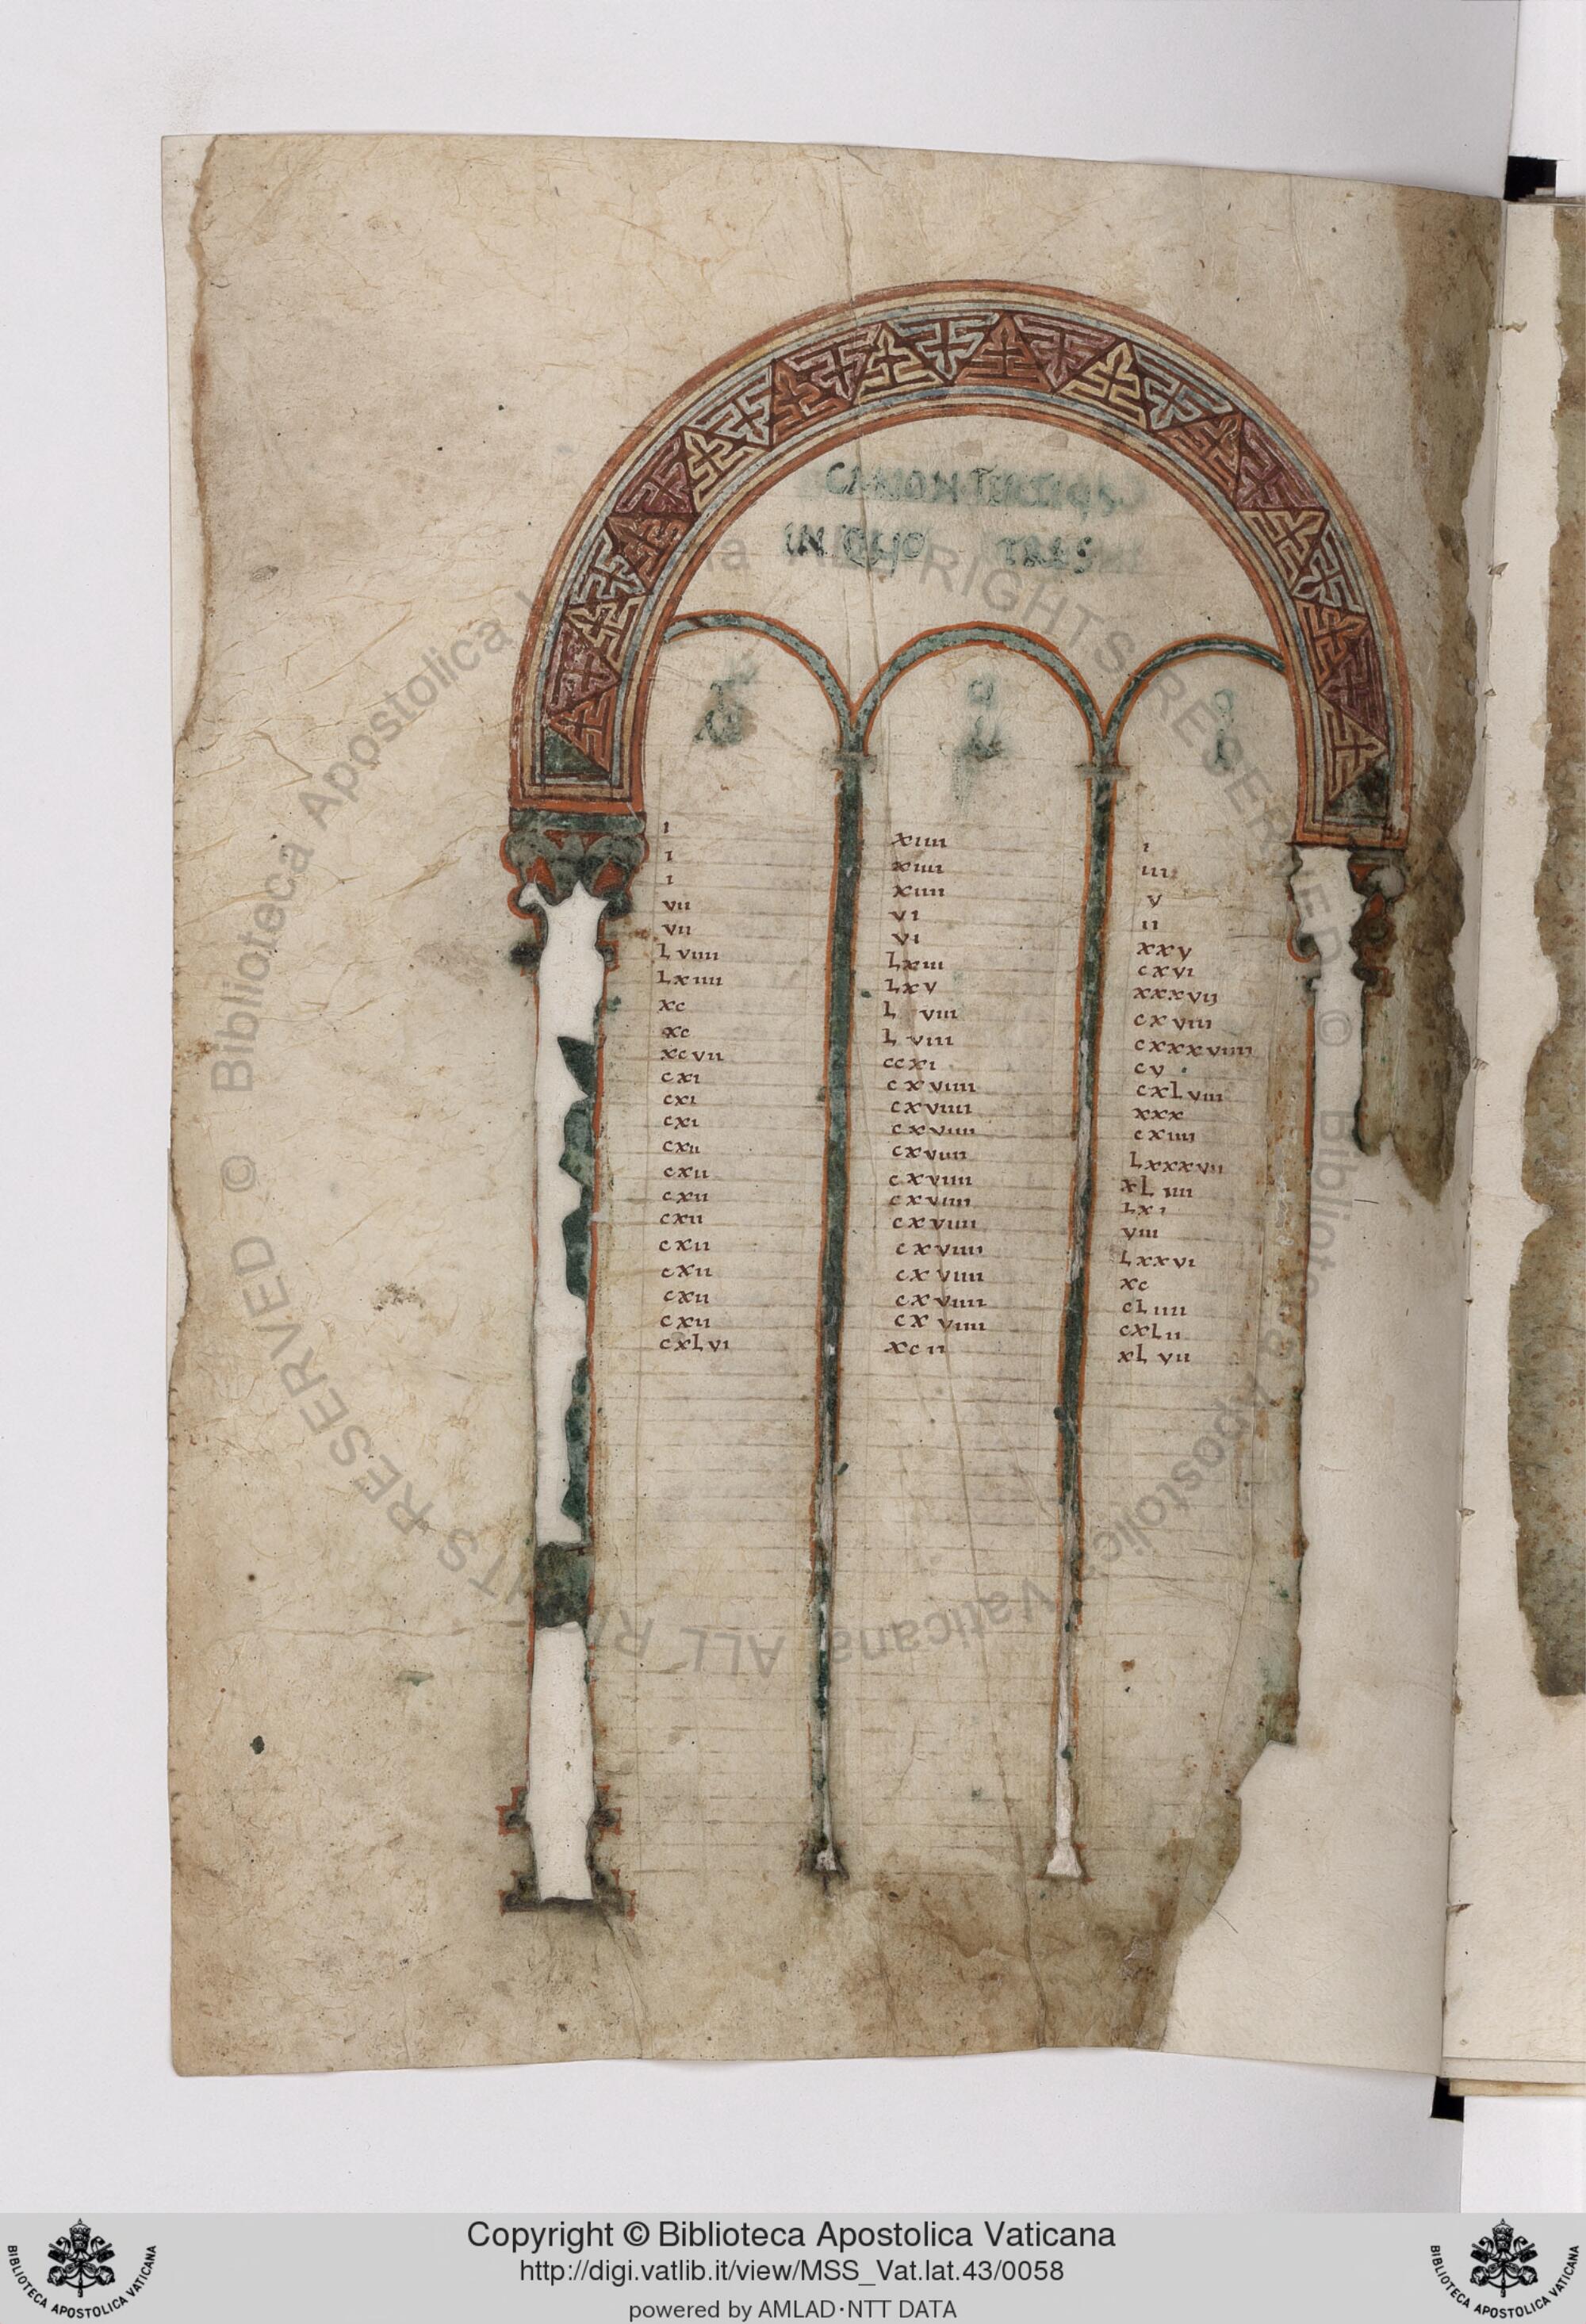 CANON TERTIUS
IN QUO TRES
i xiiii i
i xiiii iii
i xiiii v
vii vi ii
vii vi xxv
Lviiii Lxiii cxvi
Lxiiii Lxv xxxvii
xc L viii cxviii
xc L viii cxxxviiii
xcvii ccxi cv
cxi cxviiii cxLviii
cxi cxviiii xxx
cxi cxviiii cxiiii
cxii cxviiii Lxxxvii
cxii cxviiii xLiiii
cxii cxviiii Lxi
cxii cxviiii viii
cxii cxviiii Lxxvi
cxii cxviiii xc
cxii cxviiii cLiiii
cxii cxviiii cxLii
cxLvi xcii xLvii
© Biblioteca Apostolica Vaticana ALL RIGHTS RESERVED © Biblioteca Apostolica Vaticana ALL RIGHTS RESERVED
Copyright © Biblioteca Apostolica Vaticana
http://digi.vatlib.it/view/MSS_Vat.lat.43/0058
powered by AMLAD·NTT DATA
BIBLIOTECA APOSTOLICA VATICANA
BIBLIOTECA APOSTOLICA VATICANA